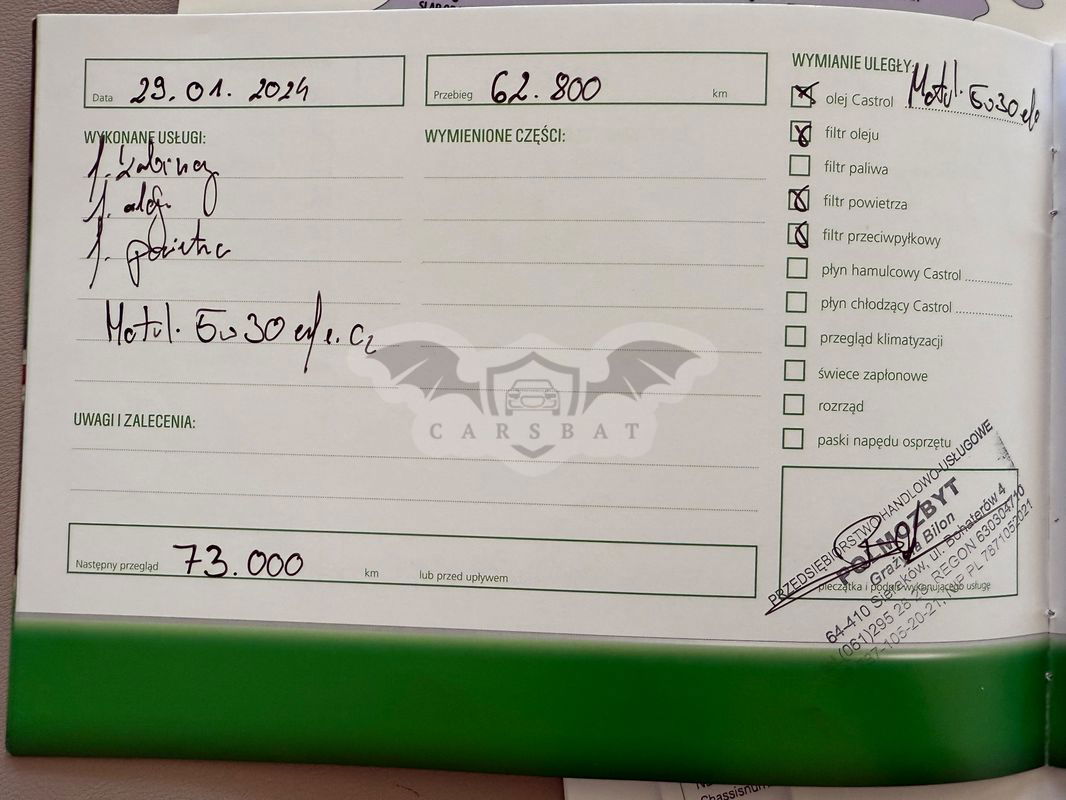 Data 29.01.2024
Przebieg 62.800 km
WYKONANE USŁUGI:
1. kabinay
1. olej
1. powietrza
Motul. 5w30
WYMIENIONE CZĘŚCI:
UWAGI I ZALECENIA:
Następny przegląd 73.000 km lub przed upływem
WYMIANIE ULEGŁY:
olej Castrol Motul. 5w30
filtr oleju
filtr paliwa
filtr powietrza
filtr przeciwpyłkowy
płyn hamulcowy Castrol
płyn chłodzący Castrol
przegląd klimatyzacji
świece zapłonowe
rozrząd
paski napędu osprzętu
PRZEDSIĘBIORSTWO HANDLOWO-USŁUGOWE
POLMOZBYT
Grażyna Bilon
64-410 Sieraków, ul. Bohaterów 4
(061)295 28 29, REGON 630304710
787-105-20-21, NIP PL 7871052021
pieczątka i podpis wykonującego usługę
CARSBAT
Chassisnum